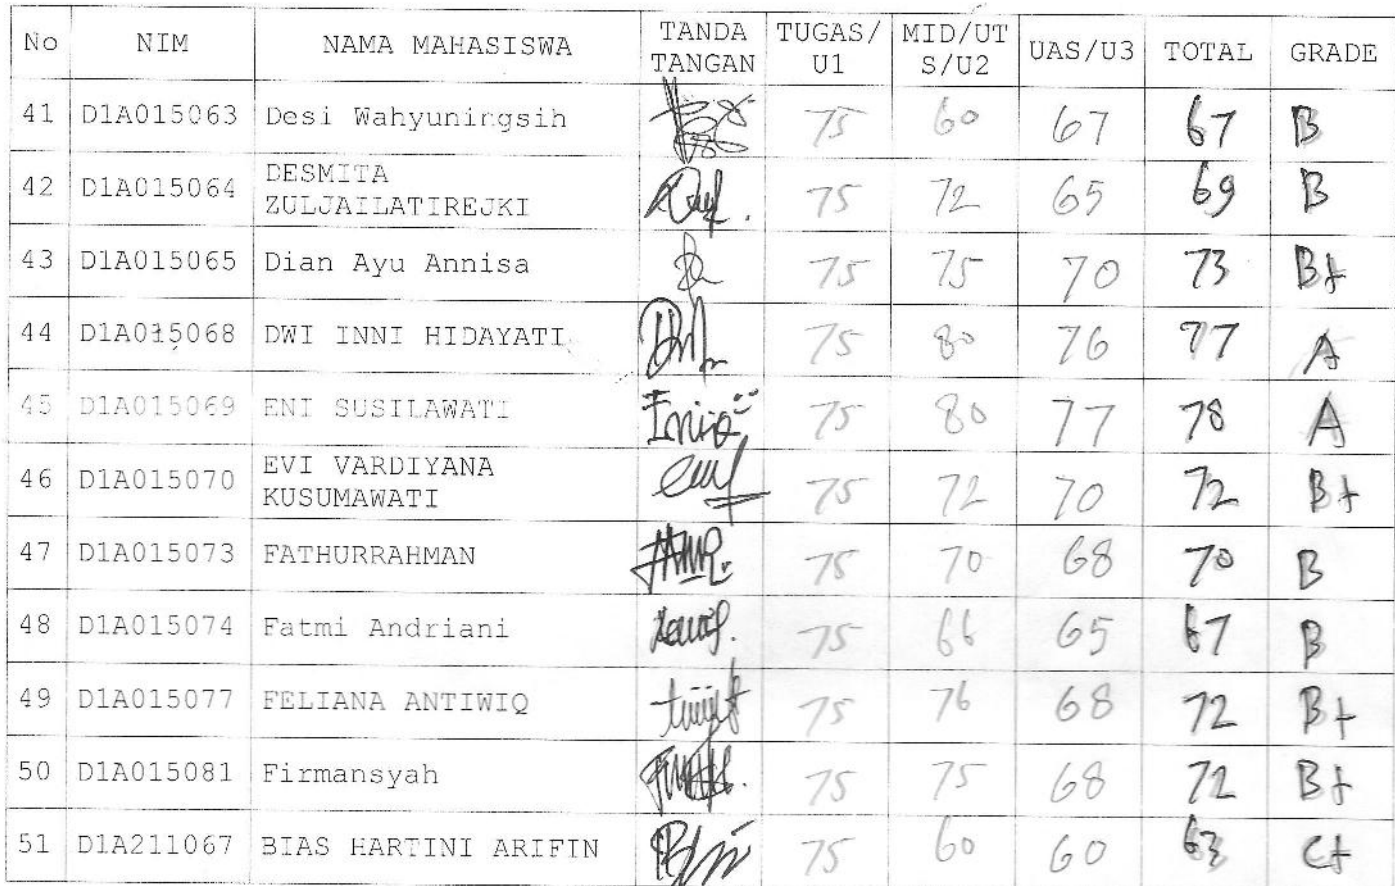 No NIM NAMA MAHASISWA TANDA TANGAN TUGAS/U1 MID/UTS/U2 UAS/U3 TOTAL GRADE
41 D1A015063 Desi Wahyuningsih 75 60 67 67 B
42 D1A015064 DESMITA ZULJAILATIREJKI 75 72 65 69 B
43 D1A015065 Dian Ayu Annisa 75 75 70 73 B+
44 D1A015068 DWI INNI HIDAYATI 75 80 76 77 A
45 D1A015069 ENI SUSILAWATI 75 80 77 78 A
46 D1A015070 EVI VARDIYANA KUSUMAWATI 75 72 70 72 B+
47 D1A015073 FATHURRAHMAN 75 70 68 70 B
48 D1A015074 Fatmi Andriani 75 66 65 67 B
49 D1A015077 FELIANA ANTIWIQ 75 76 68 72 B+
50 D1A015081 Firmansyah 75 75 68 72 B+
51 D1A211067 BIAS HARTINI ARIFIN 75 60 60 63 C+